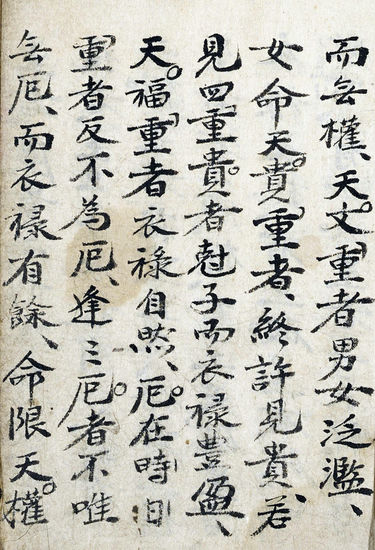 而無權、天文重者男女泛濫、
女命天貴重者、終許見貴、若
見四重貴者尅子而衣禄豊盈、
天福重者衣祿自然、厄在時日
重者反不為厄、逢三厄者不唯
無厄、而衣禄有餘、命限天權